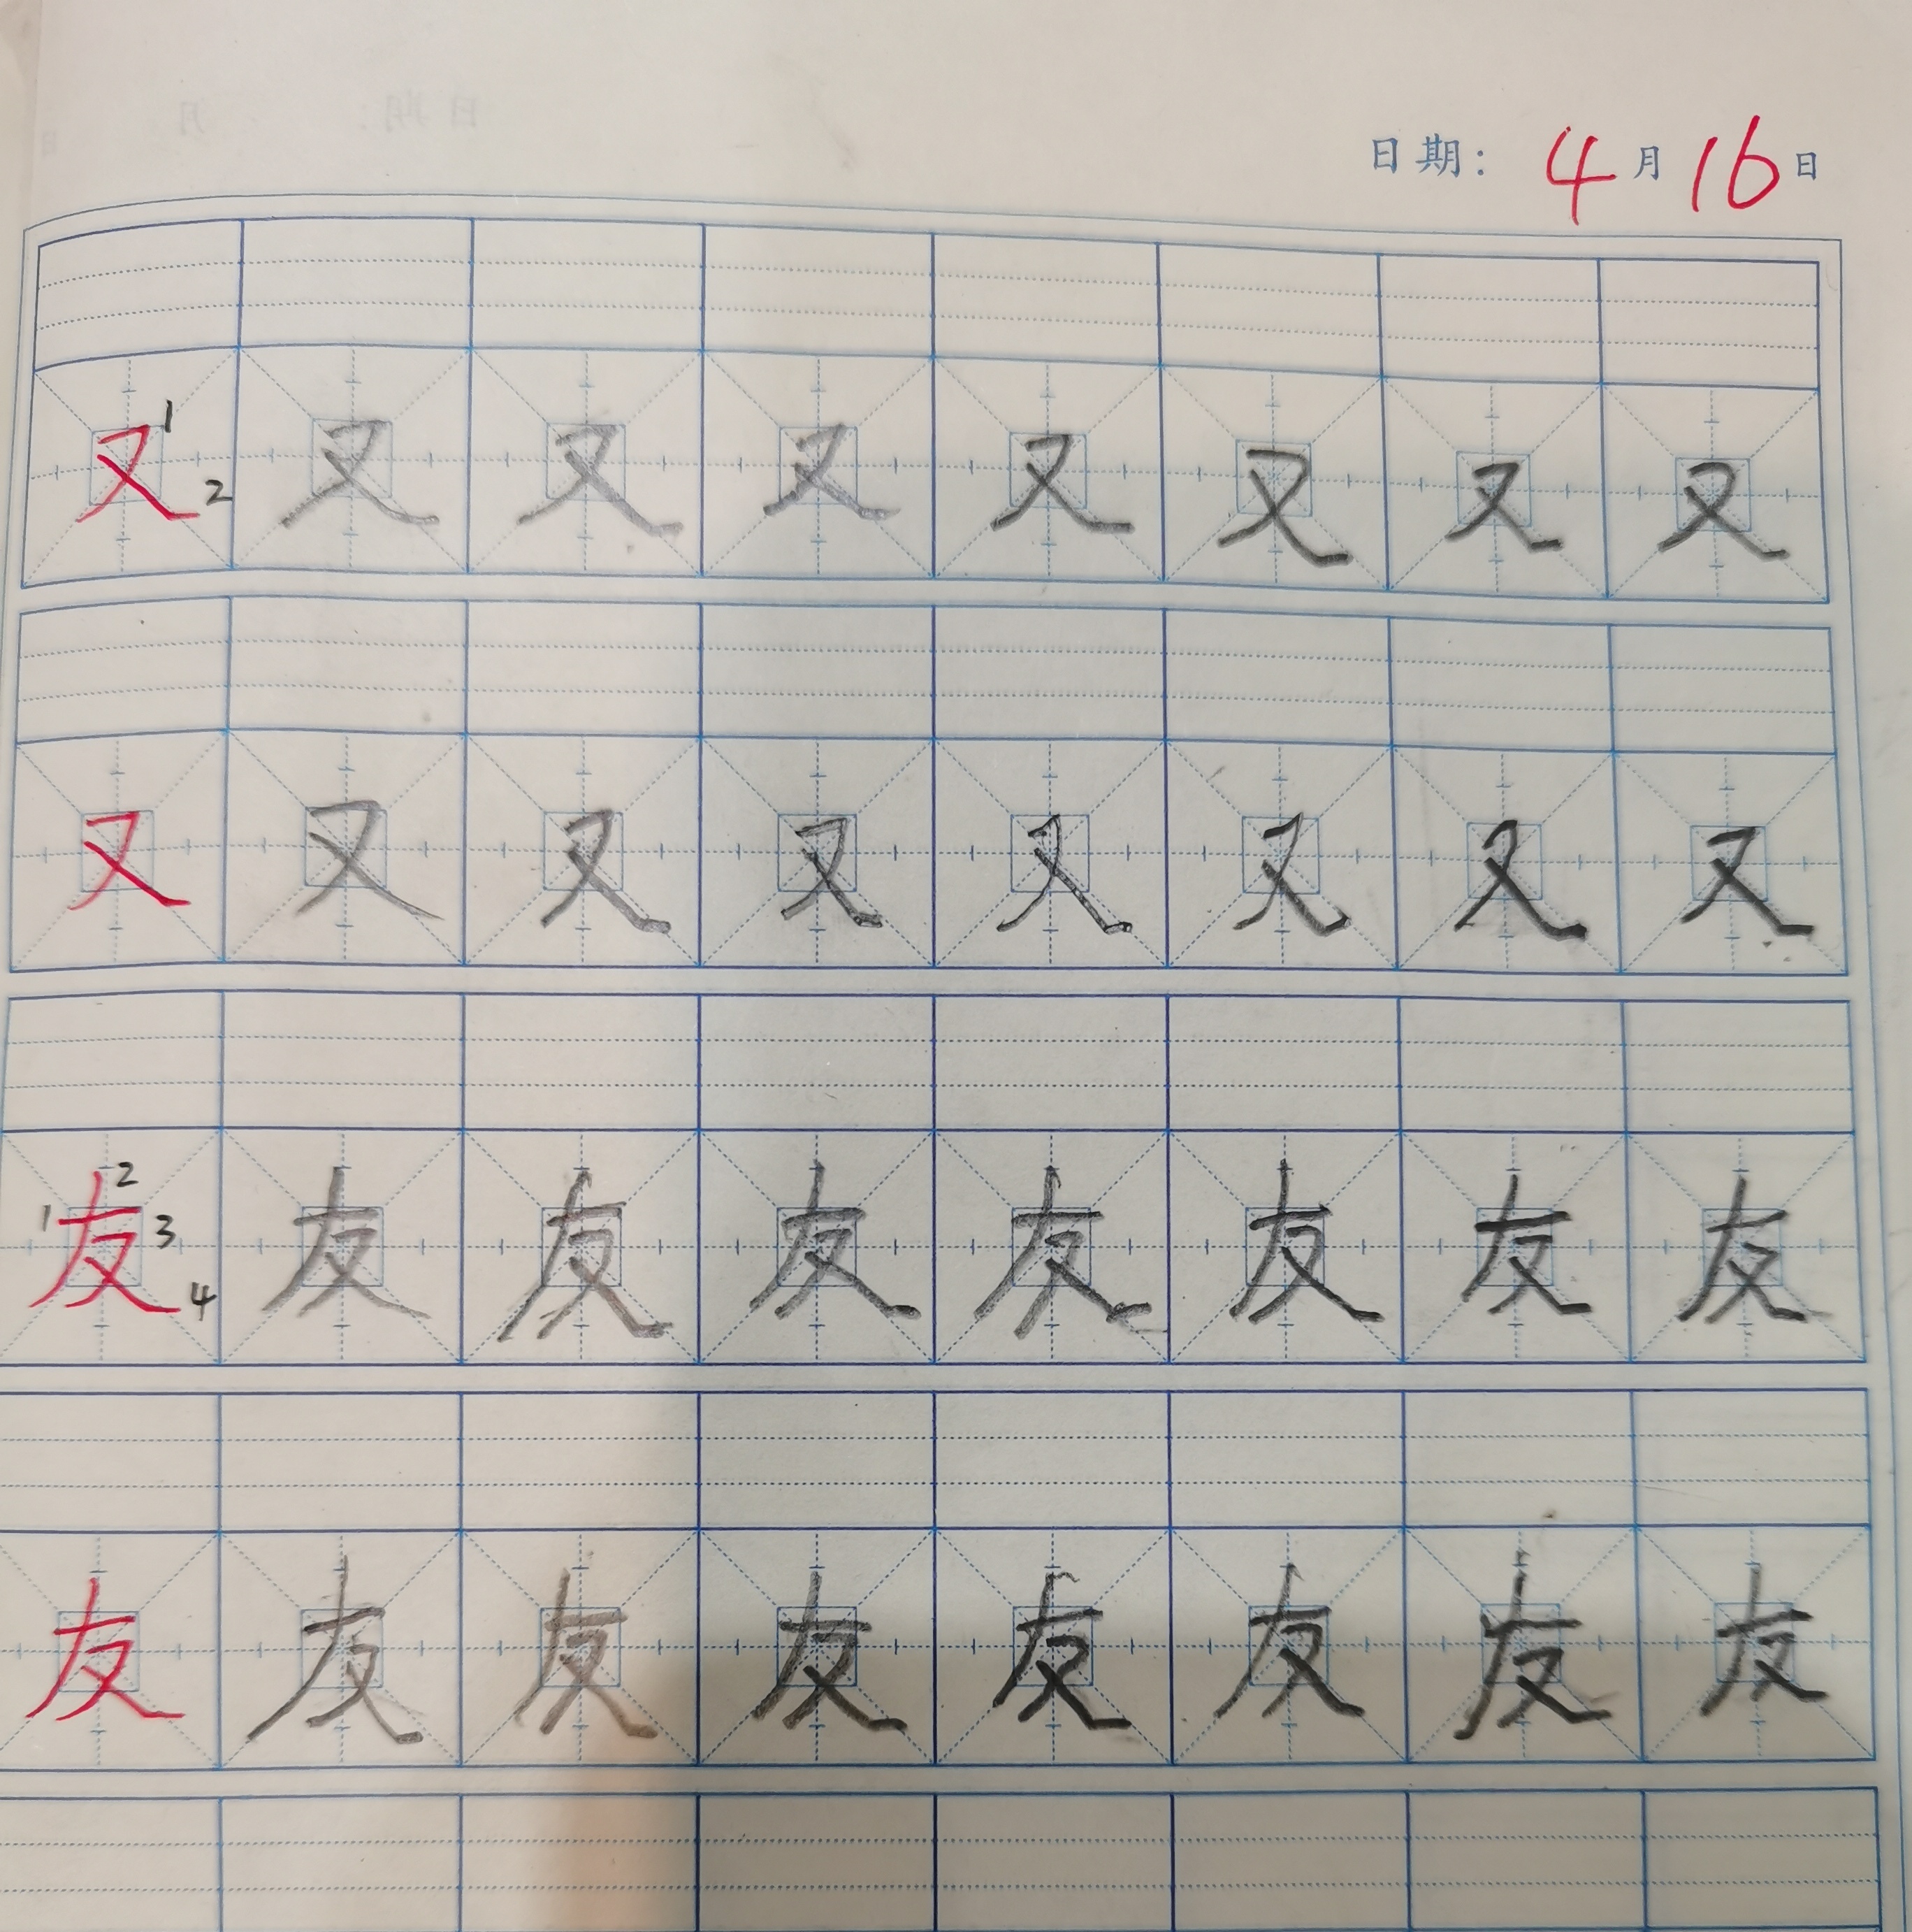 日期: 4月16日
又 1 2 又 又 又 又 又 又 又
又 又 又 又 又 又 又 又
1 友 2 3 4 友 友 友 友 友 友 友
友 友 友 友 友 友 友 友